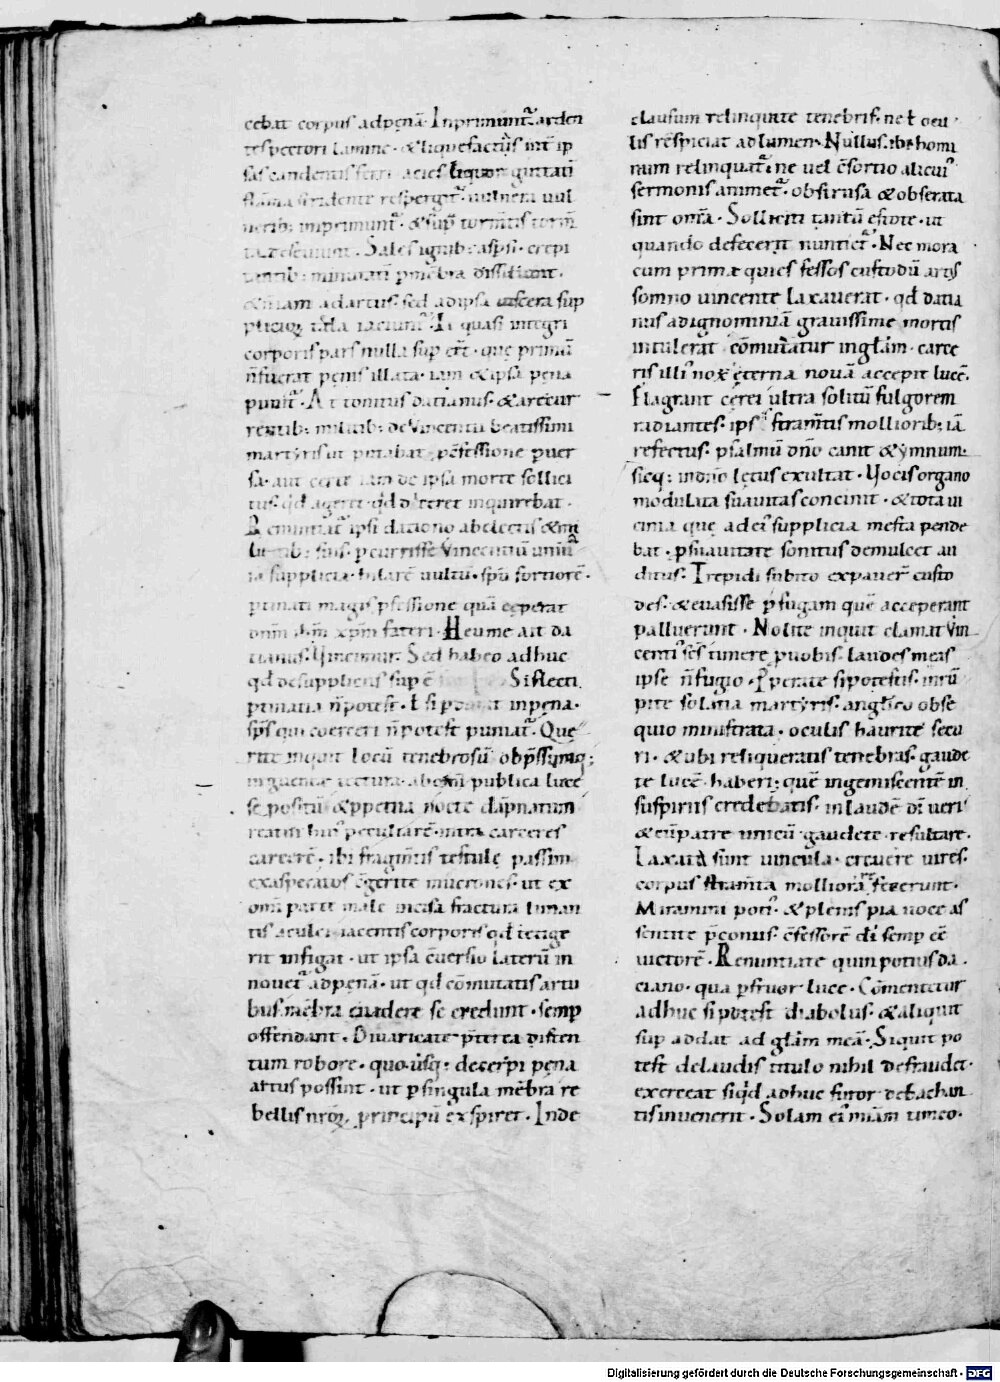 cebat corpus ad pęnā. Inprimunt᷑ arden
tes pectori lamine. & liquefactis int᷑ ip
sas candentis ferri acies liquor guttatī
flāma stridente respergit᷑. uulnera uul
nerib; imprimunt᷑. & sup tormtis torm̄
ta deseuiunt. Sales ignib; aspsi. crepi
tantib; minutati p mēbra dissiliunt.
& n̄ iam ad artus. sed ad ipsa uiscera sup
plicioꝝ tela iaciunt᷑. Et quasi integri
corporis pars nulla sup eēt. que primū
n̄ fuerat pęnis illata. iam & ipsa pęna
punit᷑. Attonitus datianus. & arcetur
restib; militib; de Vincentii beatissimi
martyris ut putabat. cōfessione puer
sa. aut certe iam de ipsa morte sollici
tus. qd ageret. qd diceret inquirebat.
Renuntiat᷑ ipsi datiano ab electis & mi
litib; suis. peurrisse Vincentiū uniūsa
supplicia. hilarē uultu. spū fortiorē.
ptinati magis pfessione quā cęperat
dnm̄ ihm̄ xpm̄ fateri. Heu me ait da
tianus. Vincimur. Sed habeo adhuc
qd de suppliciis sup ē Si flecti
ptinatia n̄ potest. ł si potuit in pęna.
sps qui coerceri n̄ potest puniat᷑. Quę
rite inquit locū tenebrosū obpssumq;
ingente tectura. ab omi publica luce
se positū & ppetua nocte dāpnatum
reatisi hui peculiarē. intra carceres
carcerē. ibi fragmtis testulę passim
exasperatos cōgerite mucrones. ut ex
omi parte male incisa fractura lunan
tis aculei iacentis corporis qd tetige
rit infigat. ut ipsa cōuersio laterū in
nouet᷑ ad pęnā. ut qd cōmutatis artu
bus mēbra euadere se credunt. semp
offendant. Diuaricate pterea disten
tum robore. quo usq; decerpi pęna
artus possint. ut p singula mēbra re
bellis nr̄oꝝ principū exspiret. Inde
clausum relinquite tenebris. ne ł ocu
lis respiciat ad lumen. Nullus ibi homi
num relinquat᷑. ne uel cōsortio alicui
sermonis animet᷑. obstrusa & obserata
sint omīa. Solliciti tantū estote. ut
quando defecerit nuntiet᷑. Nec mora
cum primæ quies fessos custodū artus
somno uincente laxauerat. qd datia
nus ad ignominiā grauissime mortis
intulerat cōmutatur in glām. carce
ris illi nox ęterna nouā accepit lucē.
Flagrant cęrei ultra solitū fulgorem
radiantes. ipsi stramtis mollioribus; iā
refectus. psalmū dno canit & ymnum.
sicq; in dno lętus exultat. Vocis organo
modulata suauitas concinit. & tota ui
cinia quę ad ei supplicia mesta pende
bat. psuauitate sonitus demulcet au
ditus. Trepidi subito expauer̄ custo
des. & euasisse p fugam quē acceperant
palluerunt. Nolite inquit clamat Vin
centi scs timere p uobis. laudes meas
ipse n̄ fugio. Pperate si potestis. inrū
pite solatia martyris. anglico obse
quio ministrata. oculis haurite secu
ri. & ubi reliqueratis tenebras. gaude
te lucē haberi; quē ingemiscentē in
suspiriis credebatis. in laudē di ueri
& eū patre unicū gaudete resultare.
Laxata sunt uincula. creuere uires.
corpus stramta molliora fecerunt.
Miramini poti. & plenis pia uoce as
sentite pconiis. cōfessorē di semp eē
uictorē. Renuntiate quin potius da
ciano. qua pfruor luce. Cōmentetur
adhuc si potest diabolus. & aliquit
sup addat ad glām meā. Siquit po
test de laudis titulo nihil defraudet.
exerceat siqd adhuc furor debachan
tis inuenerit. Solam ei miām timeo.
Digitalisierung gefördert durch die Deutsche Forschungsgemeinschaft - DFG